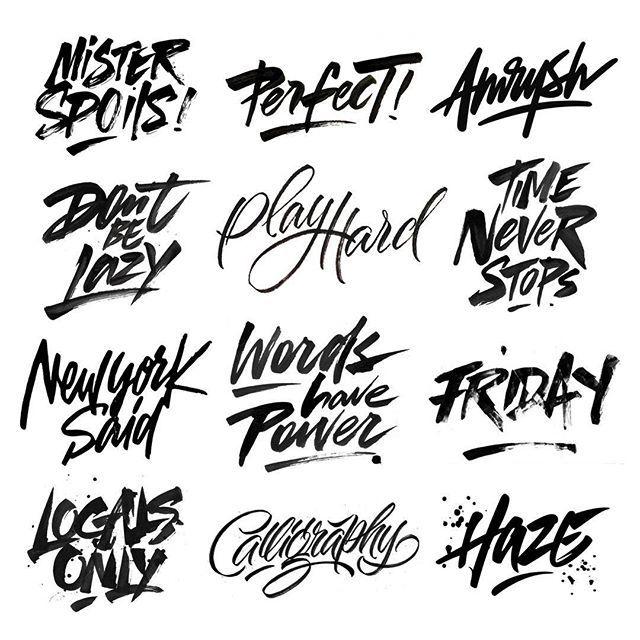 MiSTER
SPOilS!
PerfecT!
Amrysh
DOnt
BE
Lazy
PlayHard
TiME
NeveR
STOPS
Newyork
Said
Words
have
Power.
FRiDAY
LOCALS
ONLY
Calligraphy
HaZE